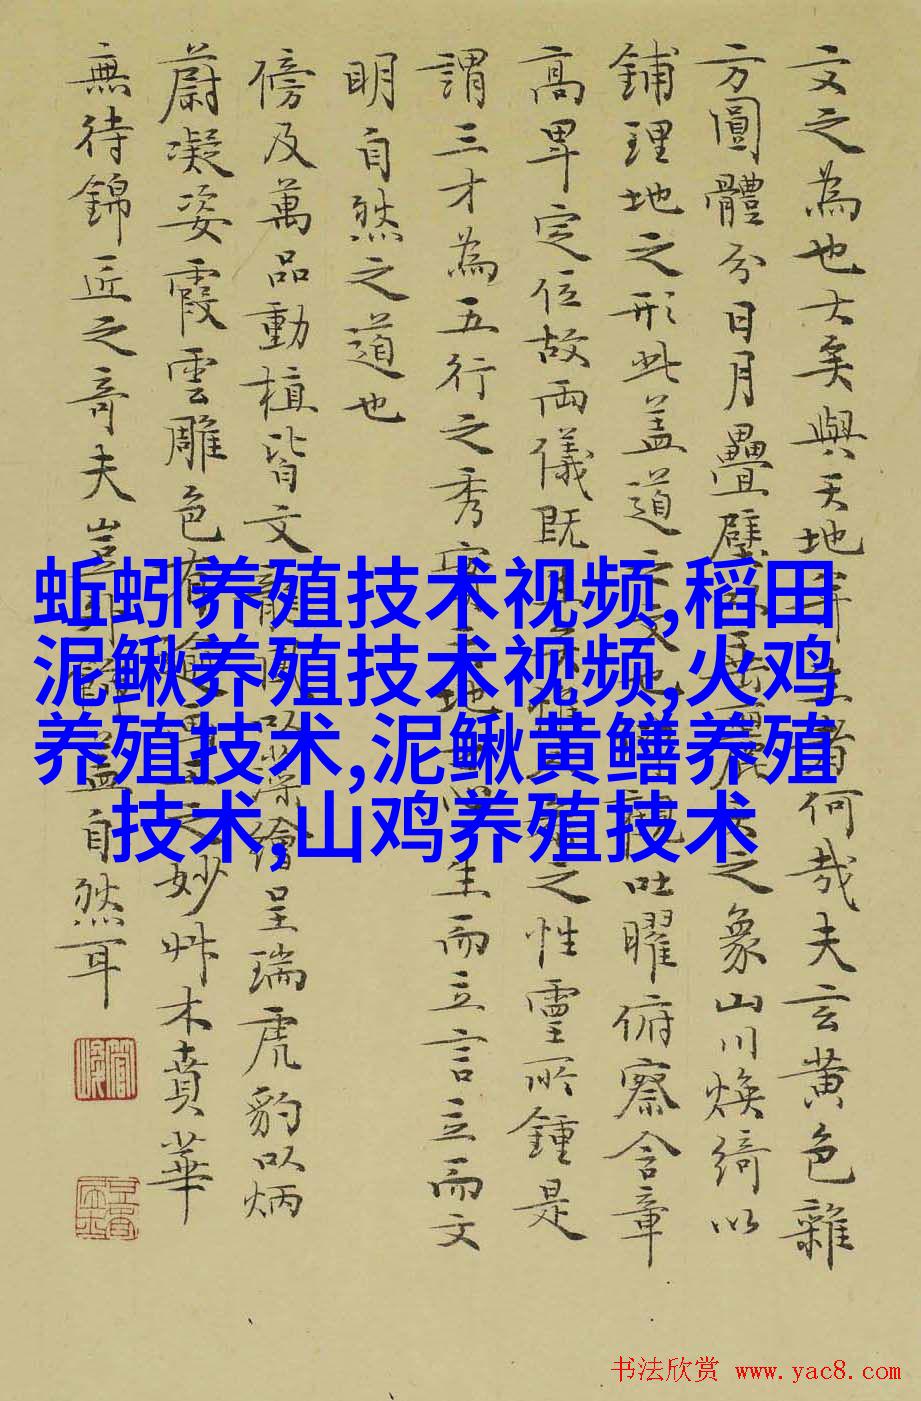 文之為也大矣與天地并生者何哉夫玄黄色雜
方圓體分日月疊璧以垂麗天之象山川煥綺以
鋪理地之形此盖道之文也仰觀吐曜俯察含章
高卑定位故兩儀既生矣惟人參之性靈所鍾是
謂三才為五行之秀實天地之心生而立言立而文
明自然之道也
傍及萬品動植皆文龍鳳以藻繪呈瑞虎豹以炳
蔚凝姿霞雲雕色有踰畫工之妙艸木賁華
無待錦匠之奇夫豈外飾盖自然耳
蚯蚓养殖技术视频,稻田
泥鳅养殖技术视频,火鸡
养殖技术,泥鳅黄鳝养殖
技术,山鸡养殖技术
书法欣赏 www.yac8.com